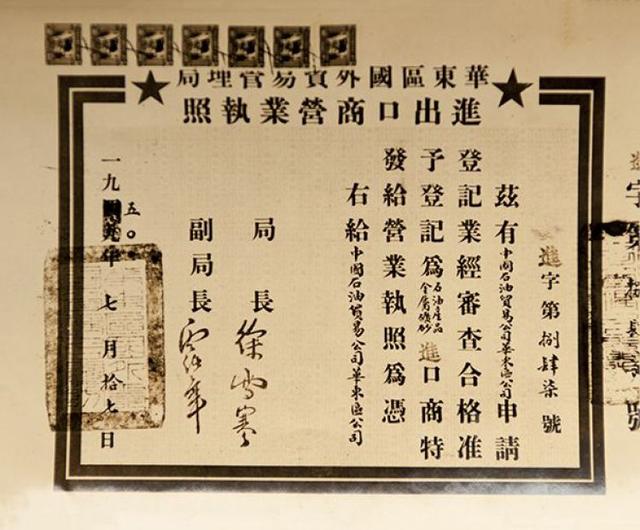 華東區國外貿易管理局
進出口商營業執照
進字第捌肆柒號
茲有中國石油貿易公司華東區公司申請
登記業經審查合格准
予登記為石油產品金屬礦砂進口商特
發給營業執照為憑
右給中國石油貿易公司華東區公司
局長徐雪寒
副局長
一九五〇年七月拾七日